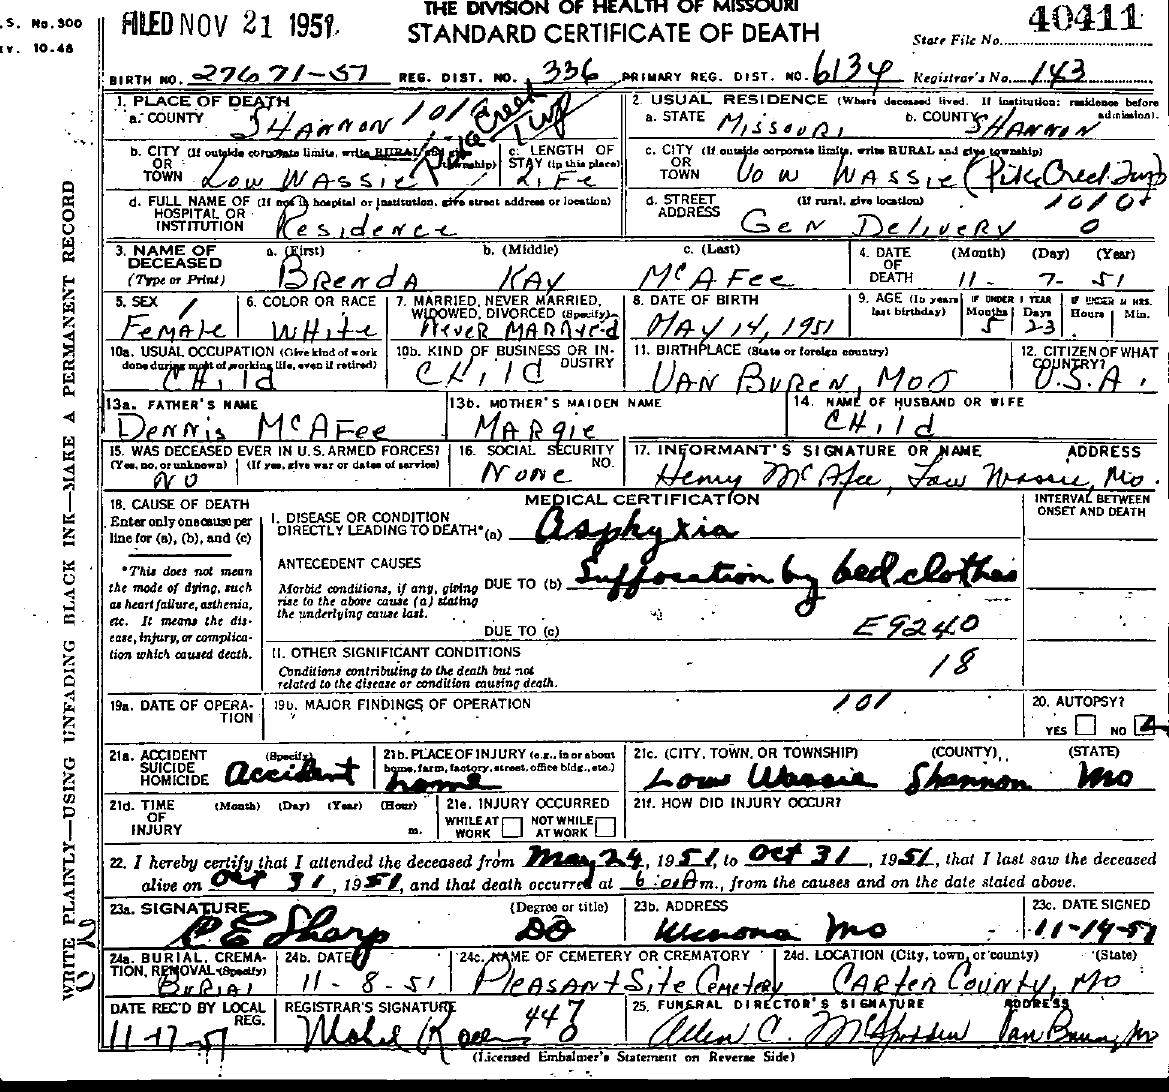 THE DIVISION OF HEALTH OF MISSOURI
STANDARD CERTIFICATE OF DEATH
S. No. 300
10.48
FILED NOV 21 1951
40411
State File No.
BIRTH NO. 27671-51 REG. DIST. NO. 336 PRIMARY REG. DIST. NO. 6134 Registrar's No. 143
1. PLACE OF DEATH 101
a. COUNTY SHANNON
Pike Creek Twp
2. USUAL RESIDENCE (Where deceased lived. If institution: residence before admission).
a. STATE MISSOURI b. COUNTY SHANNON
b. CITY (If outside corporate limits, write RURAL and give township) OR TOWN Low WASSIE
c. LENGTH OF STAY (in this place) LIFE
c. CITY (If outside corporate limits, write RURAL and give township) OR TOWN Low WASSIE (Pike Creek Twp)
d. FULL NAME OF (If not in hospital or institution, give street address or location) HOSPITAL OR INSTITUTION Residence
d. STREET ADDRESS (If rural, give location) Gen Delivery
3. NAME OF DECEASED (Type or Print) a. (First) BRENDA b. (Middle) KAY c. (Last) McAFee
4. DATE OF DEATH (Month) (Day) (Year) 11- 7- 51
5. SEX Female
6. COLOR OR RACE WHITE
7. MARRIED, NEVER MARRIED, WIDOWED, DIVORCED (Specify) Never MARRied
8. DATE OF BIRTH MAY 14, 1951
9. AGE (In years last birthday) IF UNDER 1 YEAR Months 5 Days 23 IF UNDER 24 HRS. Hours Min.
10a. USUAL OCCUPATION (Give kind of work done during most of working life, even if retired) CHild
10b. KIND OF BUSINESS OR INDUSTRY CHild
11. BIRTHPLACE (State or foreign country) VAN BUREN, MO
12. CITIZEN OF WHAT COUNTRY? U.S.A.
13a. FATHER'S NAME Dennis McAFee
13b. MOTHER'S MAIDEN NAME MARGIE
14. NAME OF HUSBAND OR WIFE CHild
15. WAS DECEASED EVER IN U.S. ARMED FORCES? (Yes, no, or unknown) (If yes, give war or dates of service) NO
16. SOCIAL SECURITY NO. None
17. INFORMANT'S SIGNATURE OR NAME ADDRESS Henry McAfee, Low Wassie, Mo.
18. CAUSE OF DEATH
Enter only one cause per line for (a), (b), and (c)
*This does not mean the mode of dying, such as heart failure, asthenia, etc. It means the disease, injury, or complication which caused death.
MEDICAL CERTIFICATION
INTERVAL BETWEEN ONSET AND DEATH
I. DISEASE OR CONDITION DIRECTLY LEADING TO DEATH* (a) Asphyxia
ANTECEDENT CAUSES
Morbid conditions, if any, giving rise to the above cause (a) stating the underlying cause last.
DUE TO (b) Suffocation by bed clothes
DUE TO (c) E9240
II. OTHER SIGNIFICANT CONDITIONS 18
Conditions contributing to the death but not related to the disease or condition causing death.
19a. DATE OF OPERATION
19b. MAJOR FINDINGS OF OPERATION 101
20. AUTOPSY? YES NO
21a. ACCIDENT SUICIDE HOMICIDE (Specify) Accident
21b. PLACE OF INJURY (e.g., in or about home, farm, factory, street, office bldg., etc.) home
21c. (CITY, TOWN, OR TOWNSHIP) (COUNTY) (STATE) Low Wassie Shannon Mo
21d. TIME OF INJURY (Month) (Day) (Year) (Hour) m.
21e. INJURY OCCURRED WHILE AT WORK NOT WHILE AT WORK
21f. HOW DID INJURY OCCUR?
22. I hereby certify that I attended the deceased from May 24, 1951, to Oct 31, 1951, that I last saw the deceased
alive on Oct 31, 1951, and that death occurred at 6:00 A m., from the causes and on the date stated above.
23a. SIGNATURE (Degree or title) C E Sharp DO
23b. ADDRESS Winona Mo
23c. DATE SIGNED 11-14-51
24a. BURIAL, CREMATION, REMOVAL (Specify) BURIAL
24b. DATE 11-8-51
24c. NAME OF CEMETERY OR CREMATORY PLEASANT Site Cemetery
24d. LOCATION (City, town, or county) (State) CARTER COUNTY, MO
DATE REC'D BY LOCAL REG. 11-17-51
REGISTRAR'S SIGNATURE Mabel
25. FUNERAL DIRECTOR'S SIGNATURE ADDRESS Allen C. McSpadden Van Buren, Mo
(Licensed Embalmer's Statement on Reverse Side)
WRITE PLAINLY—USING UNFADING BLACK INK—MAKE A PERMANENT RECORD